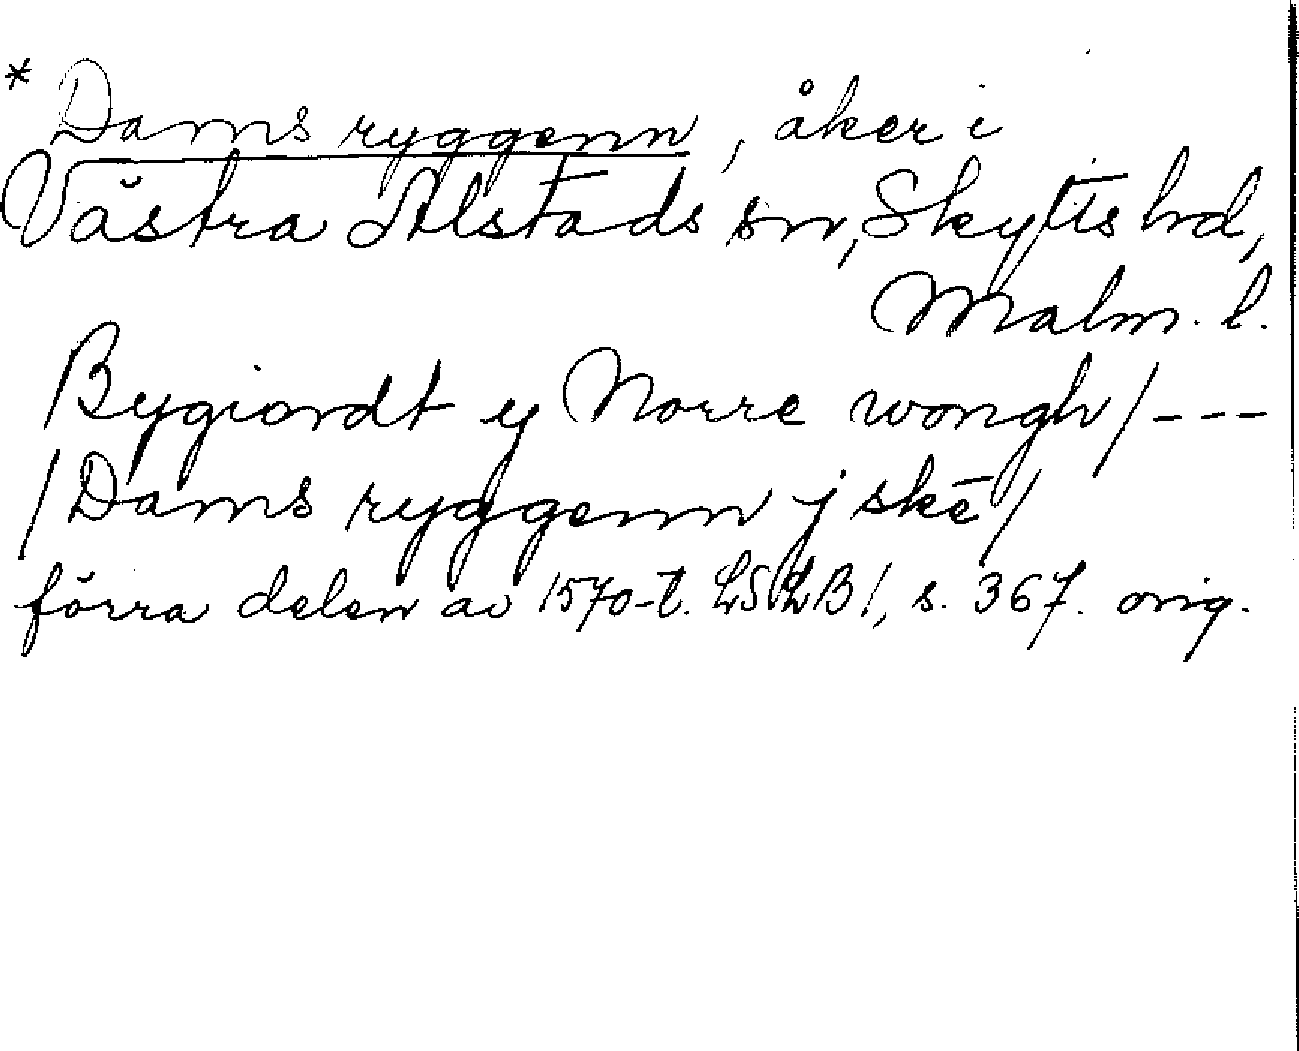 * Dams ryggenn, åker i
Västra Alstads sn, Skytts hd,
Malm. l.
Bygiordt ej Norre wongh / ---
/ Dams ryggenn j skē /
förra delen av 1570-t. LSLB 1, s. 367. orig.